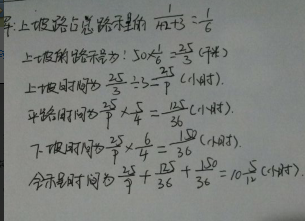 解:上坡路占总路程的 1/(1+2+3) = 1/6
上坡的路程为: 50×1/6 = 25/3 (千米)
上坡时间为 25/3 ÷3 = 25/9 (小时).
平路时间为 25/9 × 5/4 = 125/36 (小时).
下坡时间为 25/9 × 6/4 = 150/36 (小时).
全程时间为 25/9 + 125/36 + 150/36 = 10 5/12 (小时)